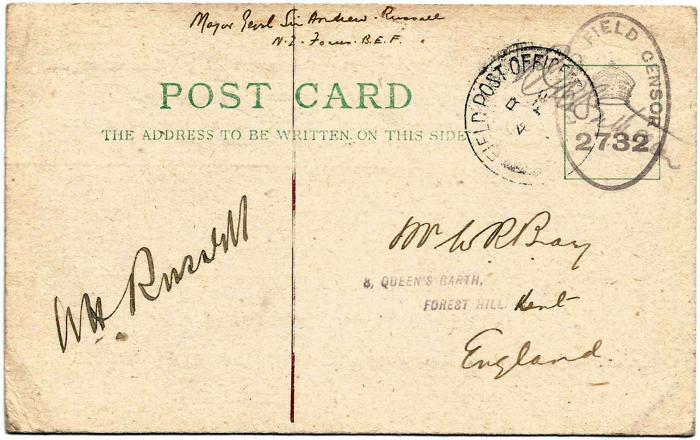 Major Genl Sir Andrew. Russell
N.Z. Forces. B.E.F.
POST CARD
THE ADDRESS TO BE WRITTEN ON THIS SIDE
FIELD POST OFFICE
FIELD CENSOR
2732
AH. Russell
Mr W R Bray
8, QUEEN'S GARTH,
FOREST HILL. Kent
England.